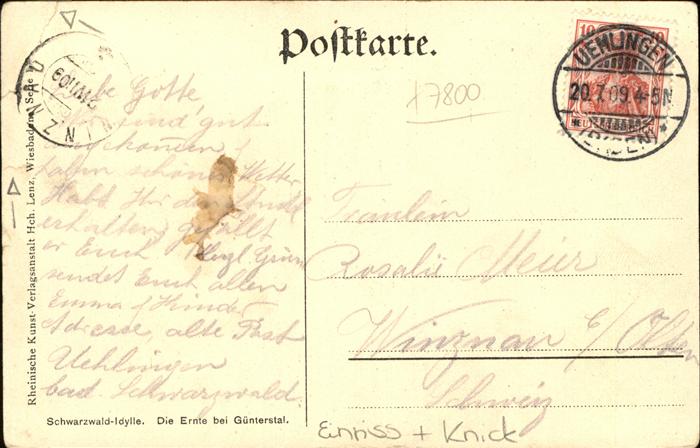 Postkarte.
10 10
UEHLINGEN
20.7.09.4-5N
(BADEN)
WINZNAU
+7800
Rheinische Kunst-Verlagsanstalt Hch. Lenz, Wiesbaden. Serie
Gotte
sind gut
angekommen
haben schönes Wetter
Habt Ihr
erhalten, gefällt
er Euch Herzl. Grüsse
sendet Euch allen
Emma & Kinder
Adresse, alte Post
Uehlingen
bad. Schwarzwald.
Fräulein
Rosalie Meier
Winznau b/ Olten
Schweiz
Schwarzwald-Idylle. Die Ernte bei Günterstal.
Einriss + Knick